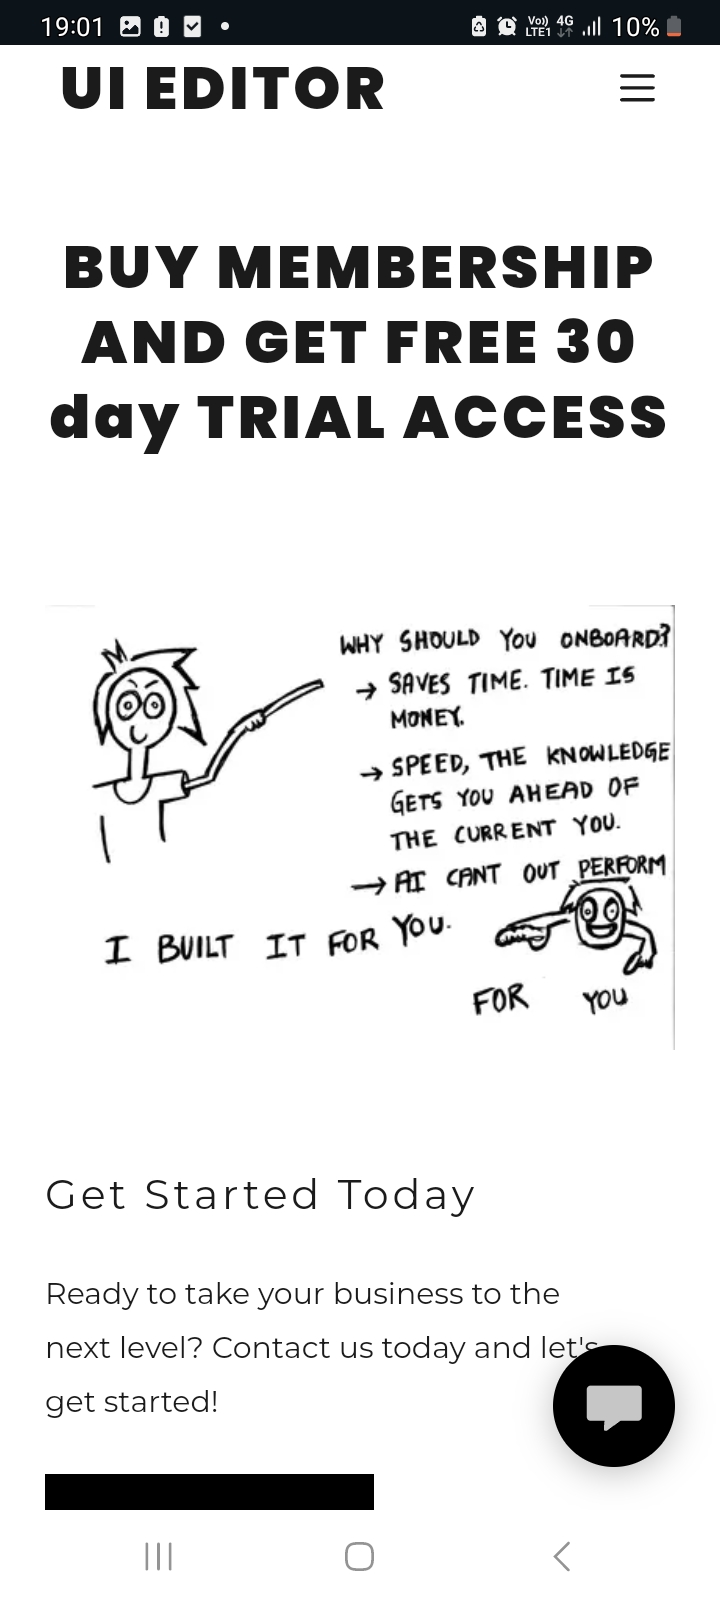 19:01
Vo)) 4G
LTE1
10%
UI EDITOR
BUY MEMBERSHIP
AND GET FREE 30
day TRIAL ACCESS
WHY SHOULD YOU ONBOARD?
→ SAVES TIME. TIME IS
MONEY.
→ SPEED, THE KNOWLEDGE
GETS YOU AHEAD OF
THE CURRENT YOU.
→ AI CANT OUT PERFORM
I BUILT IT FOR YOU.
FOR YOU
Get Started Today
Ready to take your business to the
next level? Contact us today and let's
get started!